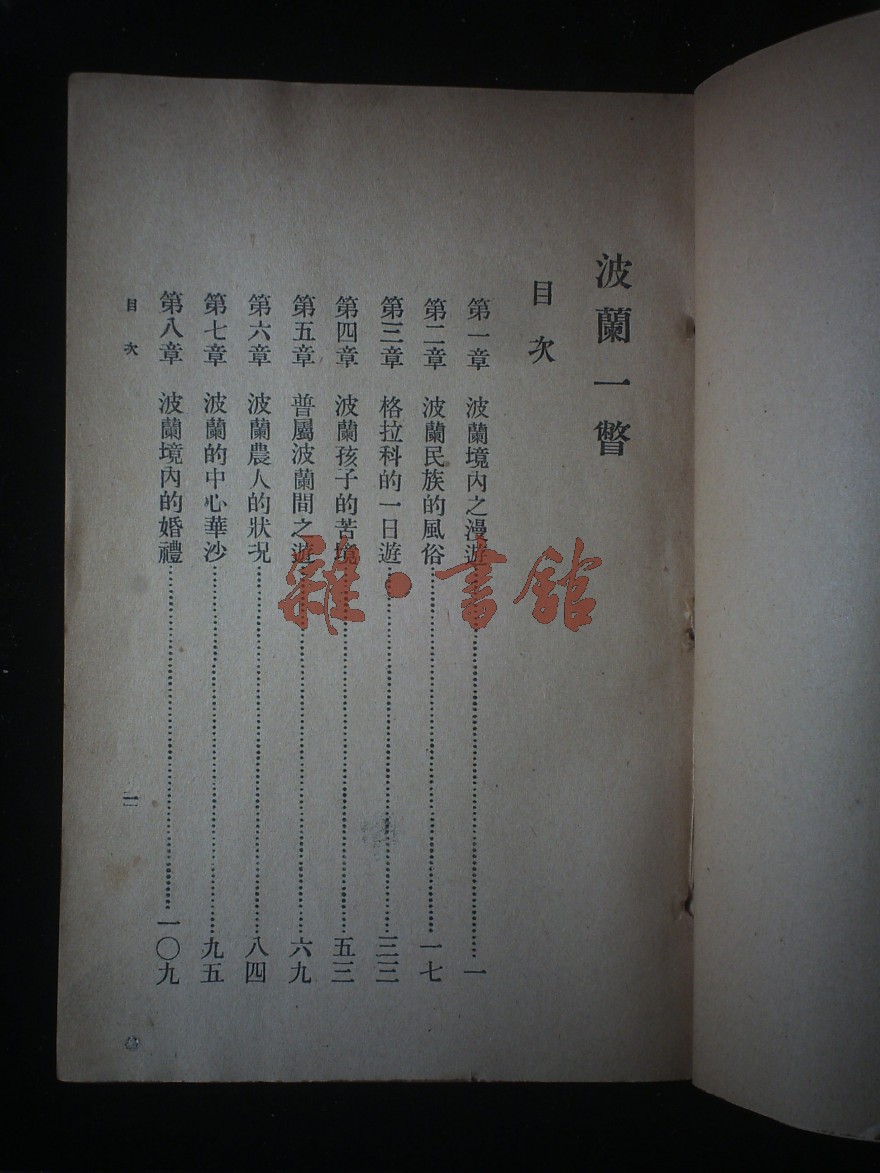 波蘭一瞥
目次
第一章　波蘭境內之漫遊…………一
第二章　波蘭民族的風俗…………一七
第三章　格拉科的一日遊…………三三
第四章　波蘭孩子的苦境…………五三
第五章　普屬波蘭間之遊…………六九
第六章　波蘭農人的狀況…………八四
第七章　波蘭的中心華沙…………九五
第八章　波蘭境內的婚禮…………一〇九
目次
雜·書館